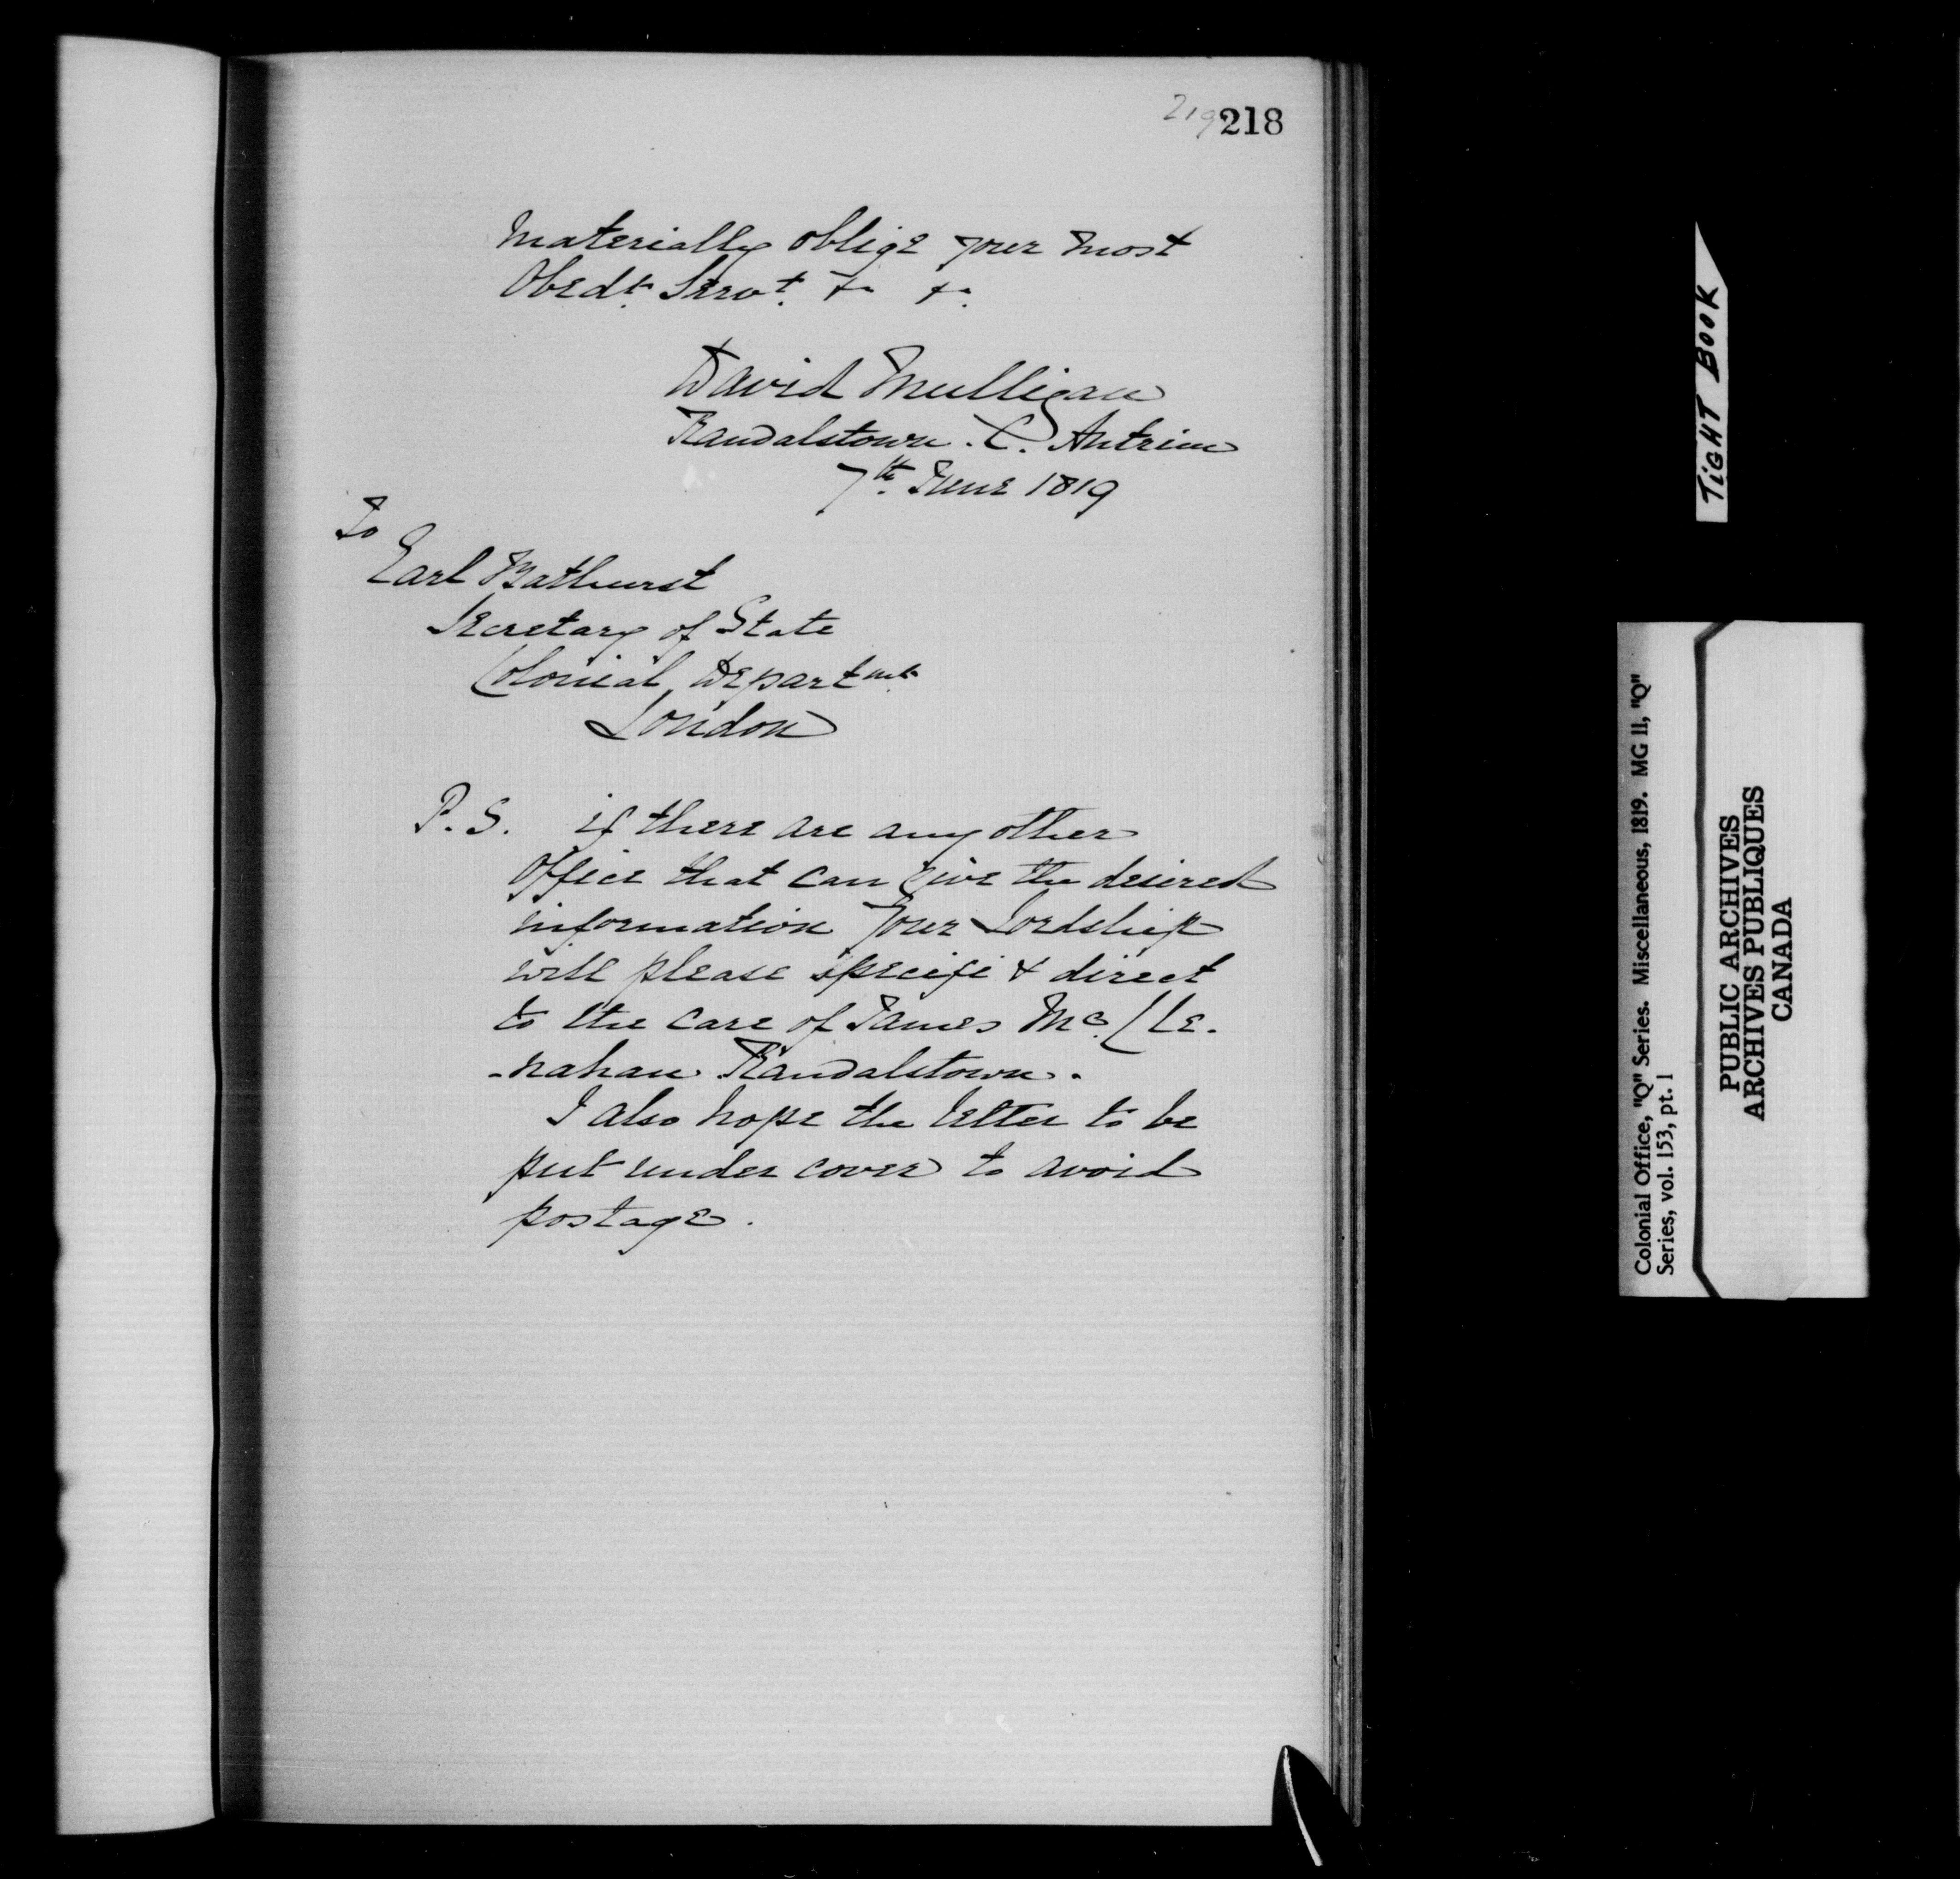 219 218
Materially oblige your most
Obedt. Servt. &c &c.
David Mulligan
Randalstown. C. Antrim
7th. June 1819
To
Earl Bathurst
Secretary of State
Colonial Departmt.
London
P.S. if there are any other
Office that can give the desired
information your Lordship
will please specifi & direct
to the care of James Mc. Cle-
-nahan Randalstown.
I also hope the letter to be
put under cover to avoid
postage.
TIGHT BOOK
Colonial Office, "Q" Series. Miscellaneous, 1819. MG 11, "Q"
Series, vol. 153, pt. 1
PUBLIC ARCHIVES
ARCHIVES PUBLIQUES
CANADA